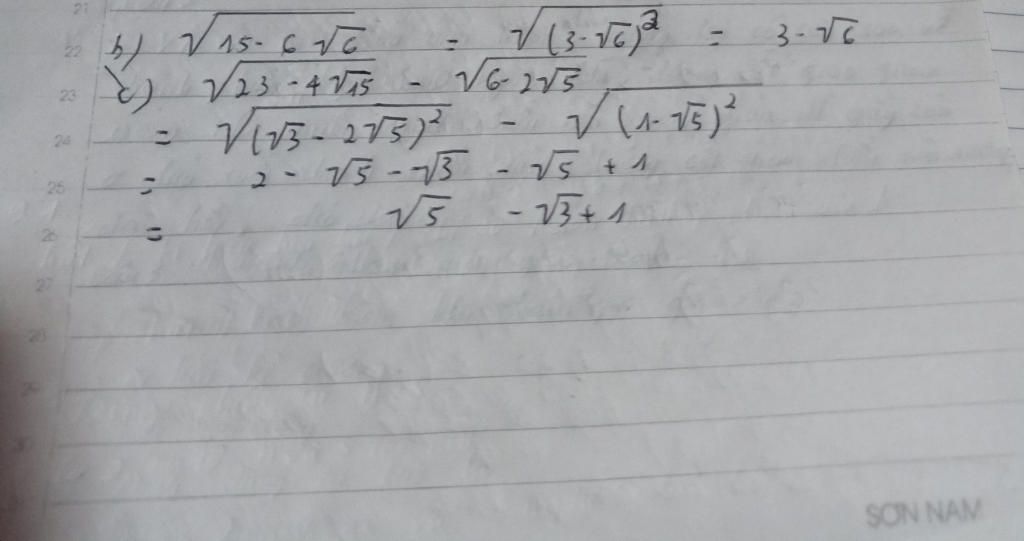 21
22 b) √(15 - 6√6) = √((3-√6)²) = 3-√6
23 c) √(23 - 4√15) - √(6 - 2√5)
24 = √((√3 - 2√5)²) - √((1-√5)²)
25 = 2 - √5 - √3 - √5 + 1
26 = √5 - √3 + 1
27
28
29
30
SƠN NAM